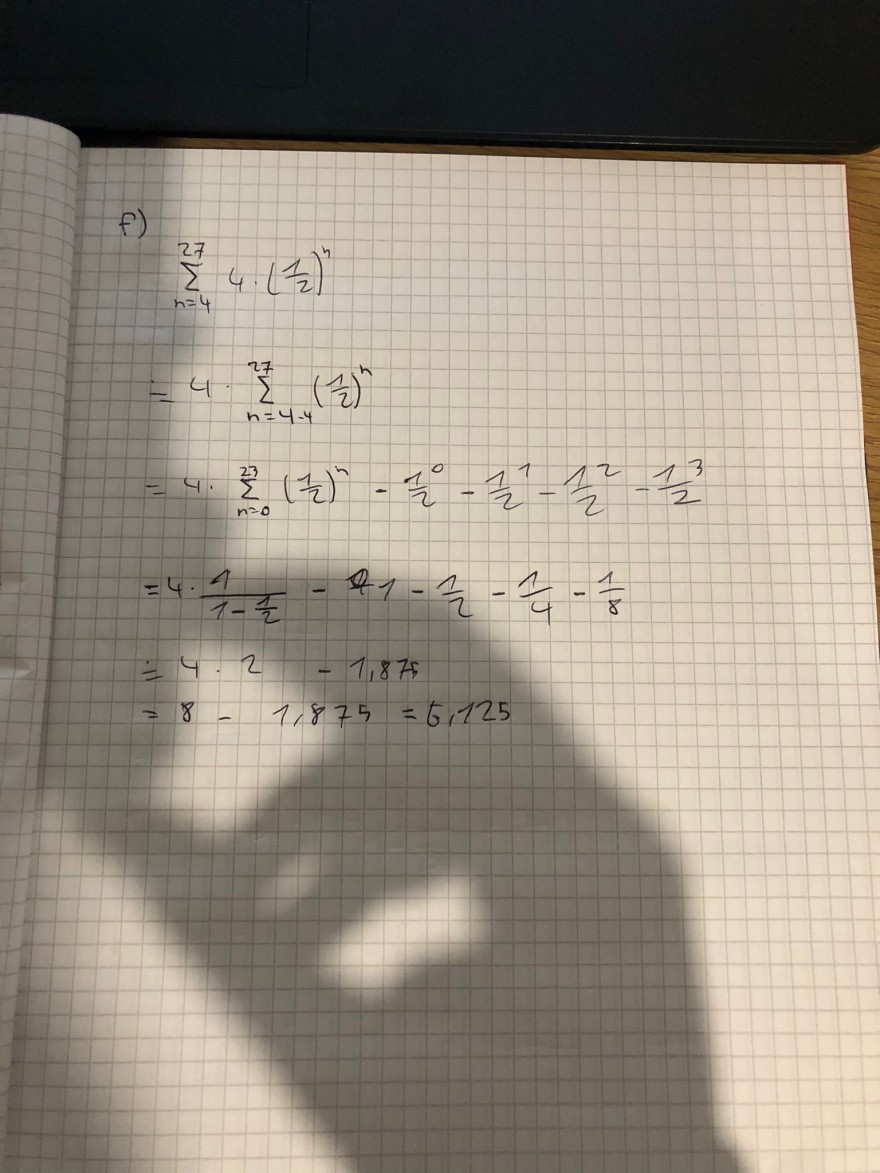 f)
27
∑ 4 · (1/2)^n
n=4
27
= 4 · ∑ (1/2)^n
n=4-4
23
= 4 · ∑ (1/2)^n - 1/2^0 - 1/2^1 - 1/2^2 - 1/2^3
n=0
= 4 · 1/(1 - 1/2) - 1 - 1/2 - 1/4 - 1/8
= 4 · 2 - 1,875
= 8 - 1,875 = 6,125